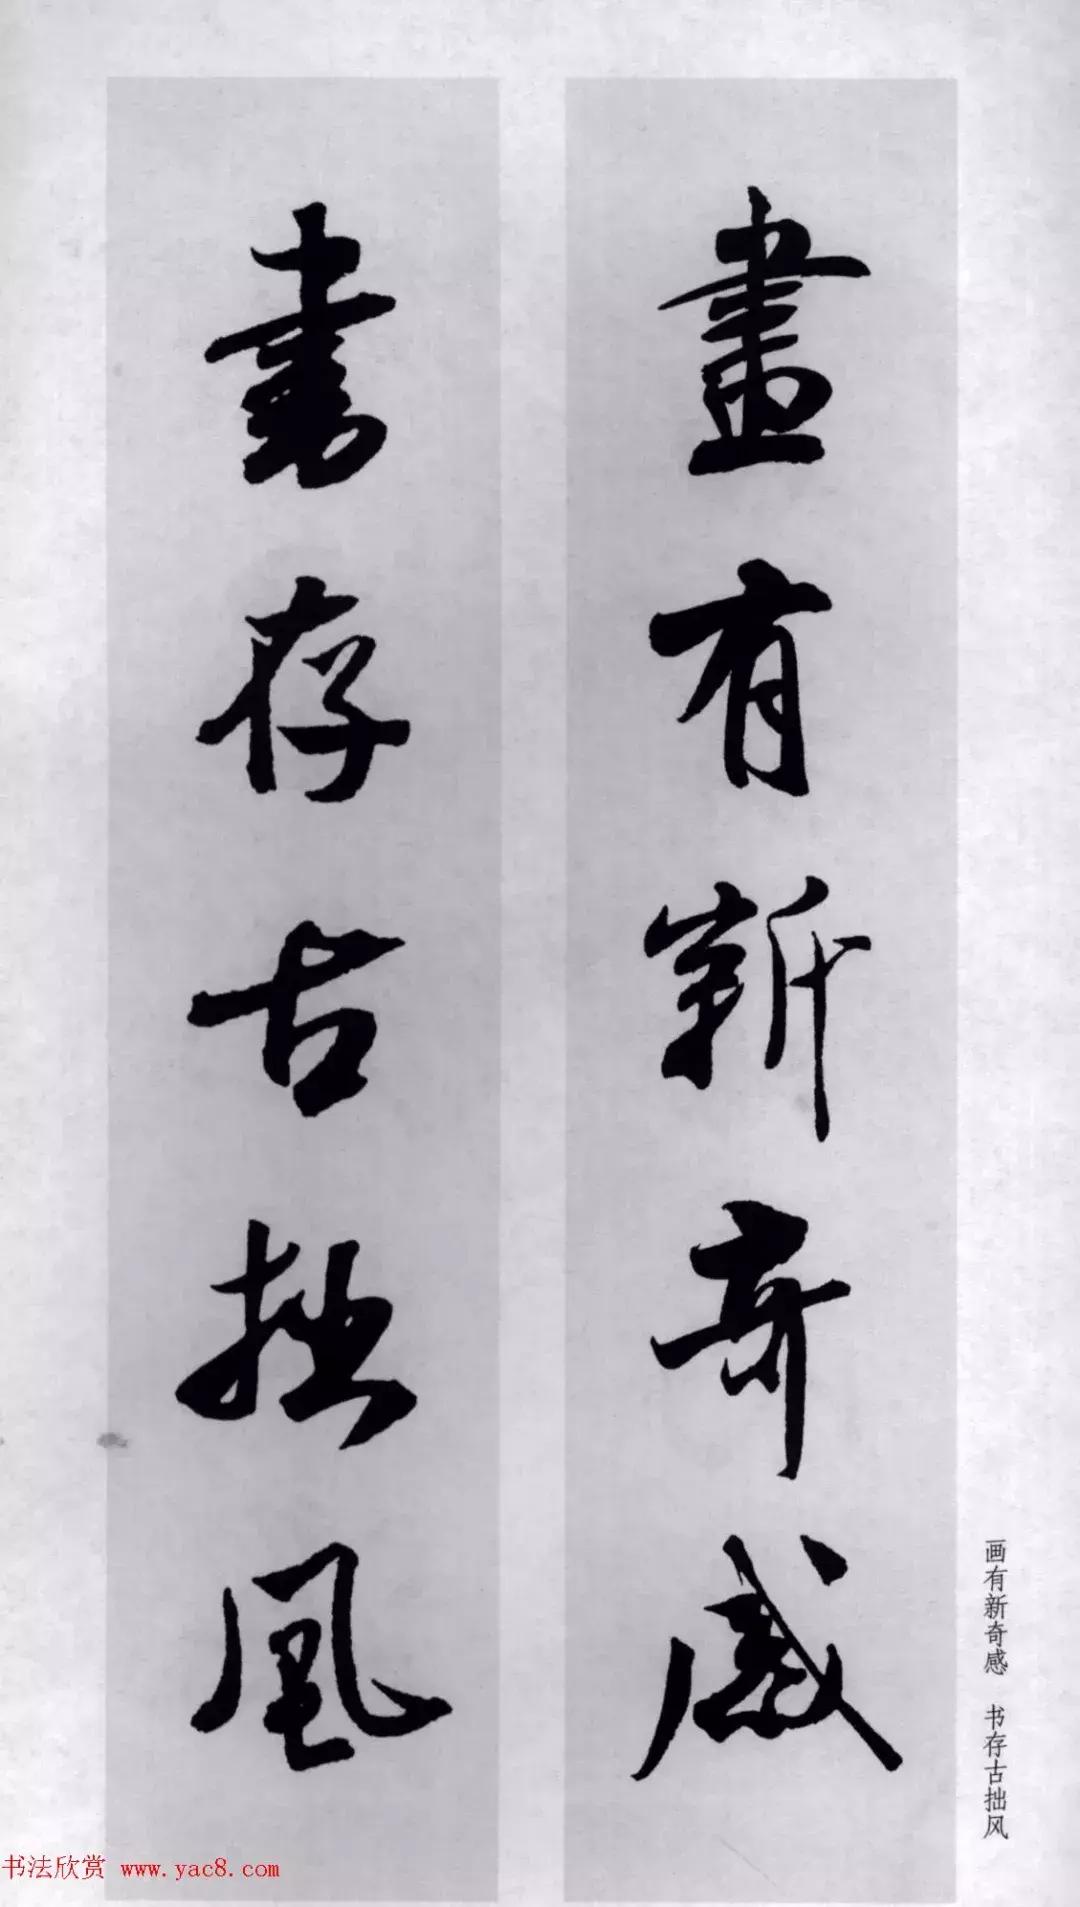 畫有新奇感
書存古拙風
画有新奇感 书存古拙风
书法欣赏 www.yac8.com